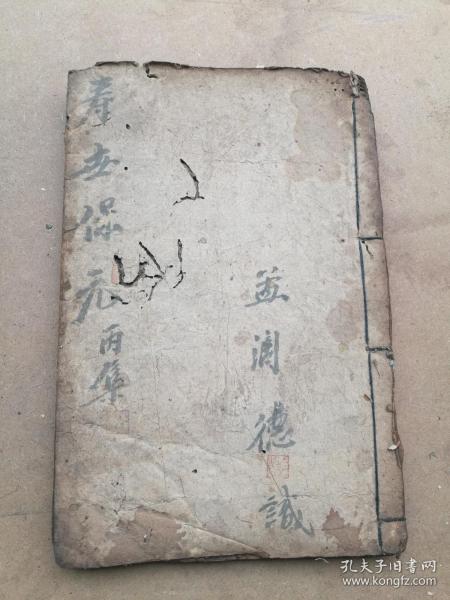 寿世保元丙集
孟润德識
孔夫子旧书网
www.kongfz.com